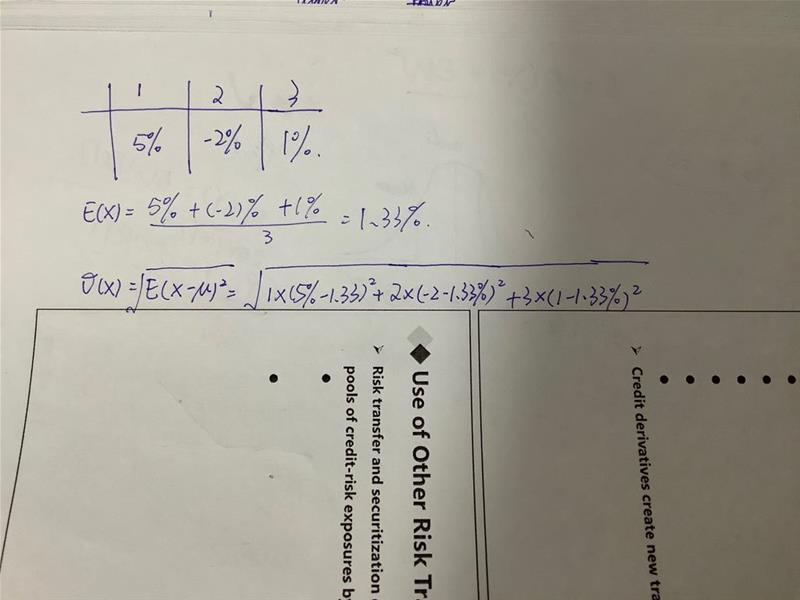 1 2 3
5% -2% 1%.
E(X) = 5% + (-2)% + 1% / 3 = 1.33%.
σ(X) = √E(X-μ)² = √1×(5%-1.33)² + 2×(-2-1.33%)² + 3×(1-1.33%)²
Use of Other Risk Tra
Risk transfer and securitization
pools of credit-risk exposures by
Credit derivatives create new tra